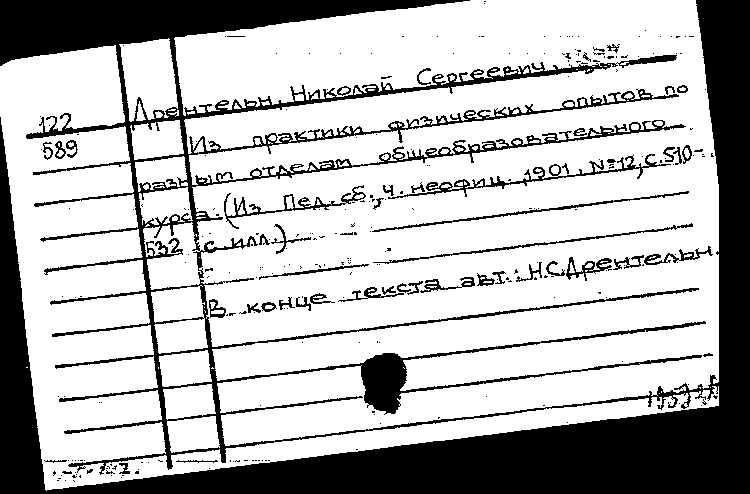 122 Дрентельн, Николай Сергеевич.
589 Из практики физических опытов по
разным отделам общеобразовательного
курса. (Из Пед. сб., ч. неофиц. ,1901, №12, с.510-
532 с илл.)
В конце текста авт.: Н.С.Дрентельн.